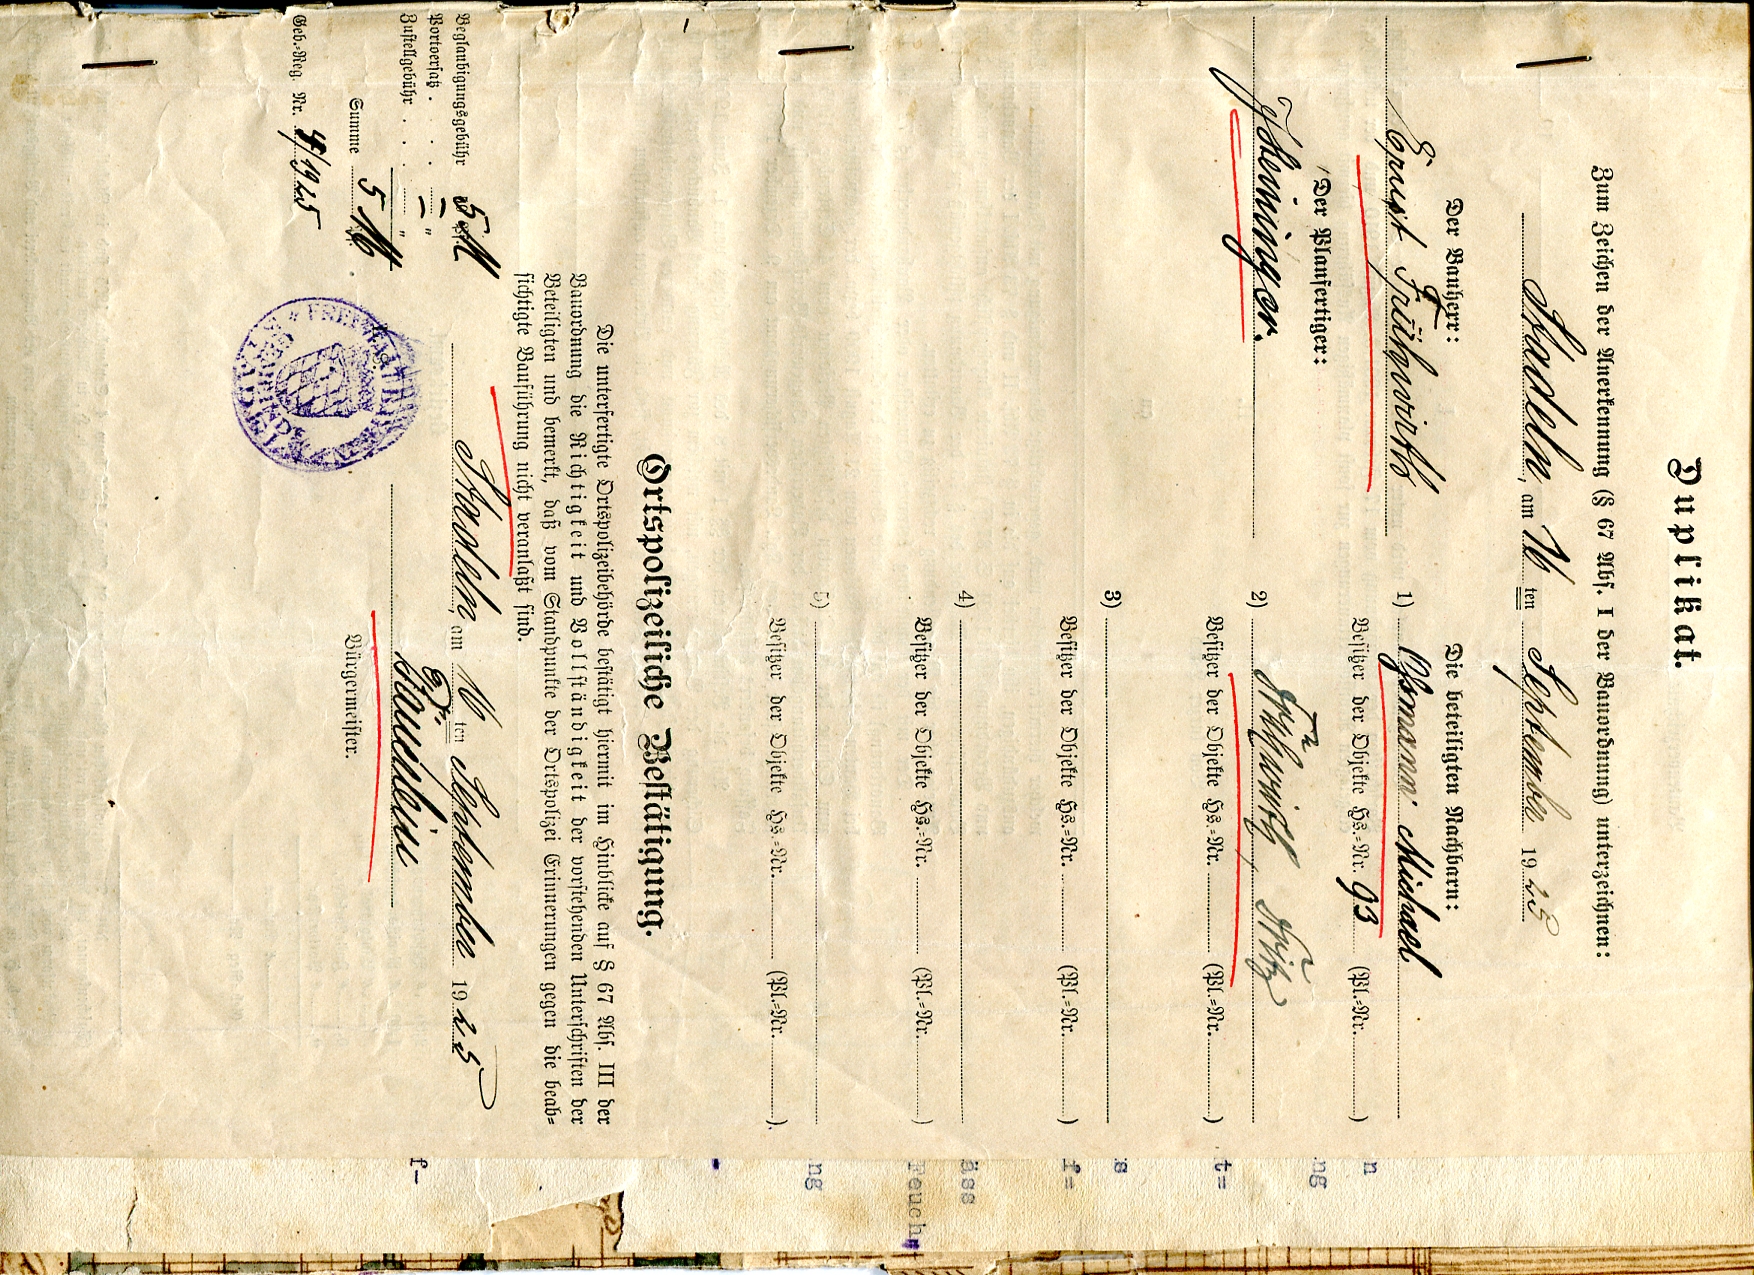 Duplikat.
Zum Zeichen der Anerkennung (§ 67 Abs. I der Bauordnung) unterzeichnen:
Stadeln, am 16 ten September 1925
Der Bauherr:
Ernst Frühwirth
Der Planfertiger:
Heininger.
Die beteiligten Nachbarn:
1) Michael
Besitzer der Objekte Hs.=Nr. 93 (Pl.=Nr. )
2) Frühwirth Fritz
Besitzer der Objekte Hs.=Nr. (Pl.=Nr. )
3)
Besitzer der Objekte Hs.=Nr. (Pl.=Nr. )
4)
Besitzer der Objekte Hs.=Nr. (Pl.=Nr. )
5)
Besitzer der Objekte Hs.=Nr. (Pl.=Nr. ).
Ortspolizeiliche Bestätigung.
Die unterfertigte Ortspolizeibehörde bestätigt hiermit im Hinblicke auf § 67 Abs. III der
Bauordnung die Richtigkeit und Vollständigkeit der vorstehenden Unterschriften der
Beteiligten und bemerkt, daß vom Standpunkte der Ortspolizei Erinnerungen gegen die beab=
sichtigte Bauführung nicht veranlaßt sind.
Stadeln, am 16 ten September 1925
Bürgermeister.
Beglaubigungsgebühr 5 M
Portoersatz . . . – "
Zustellgebühr . . . – "
Summe 5 M
Geb.=Reg. Nr. 4/1925
n
ng
t=
s
f=
äss
Feuch
ng
-
f-